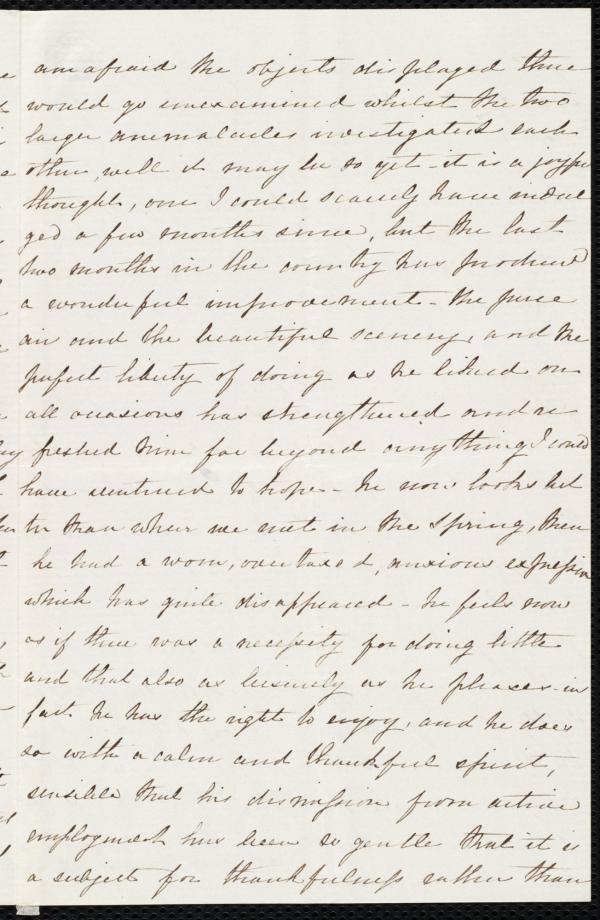 am afraid the objects displayed there
would go unexamined whilst the two
larger animalcules investigated each
other, well it may be so yet - it is a joyful
thought, one I could scarcely have indul
ged a few months since, but the last
two months in the country has produced
a wonderful improvement - the pure
air and the beautiful scenery, and the
perfect liberty of doing as he liked on
all occasions has strengthened and re
freshed him far beyond anything I could
have ventured to hope - he now looks bet
ter than when we met in the Spring, then
he had a worn, overtaxed, anxious expression
which has quite disappeared - he feels now
as if there was a necessity for doing little
and that also as leisurely as he pleases - in
fact he has the right to enjoy, and he does
so with a calm and thankful spirit,
sensible that his dismission from active
employment has been so gentle that it is
a subject for thankfulness rather than